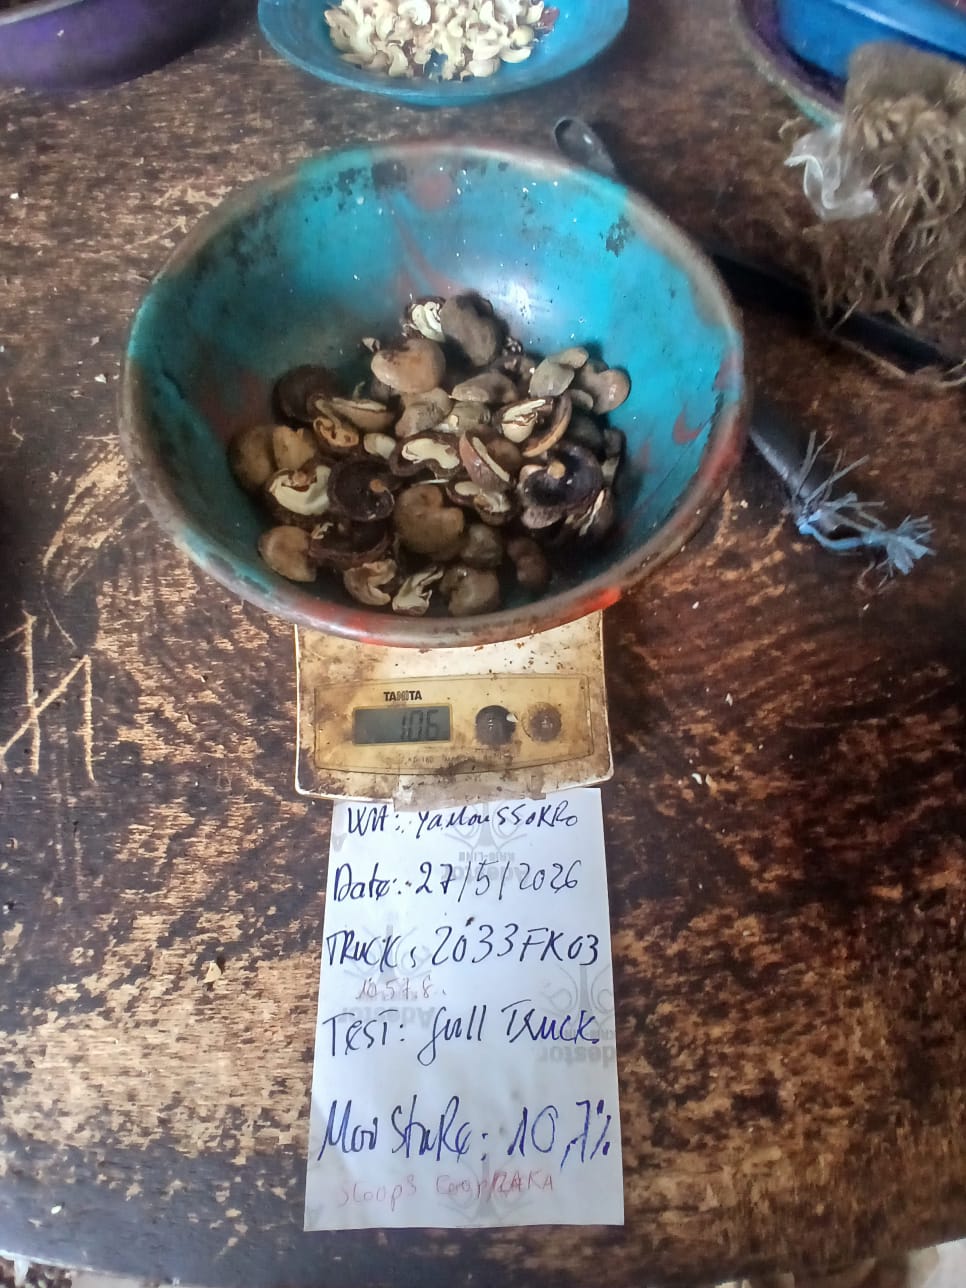 TANITA
106
WH: YAMOUSSOKRO
Date: 27/5/2026
TRUCK: 2033FK03
Test: full Truck
MoiStuRe: 10,7%
Scoops Coop